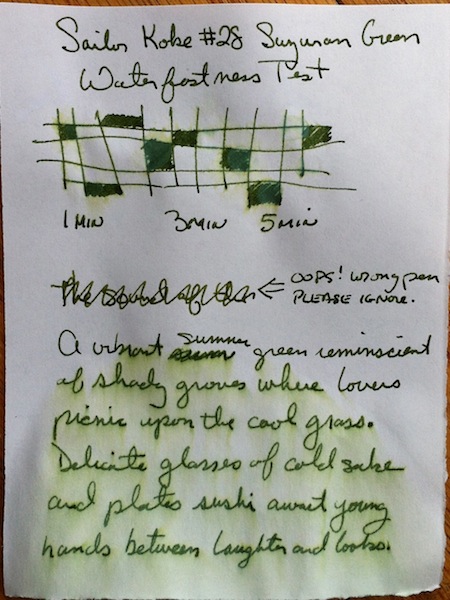 Sailor Kobe #28 Suzuran Green
Waterfastness Test
1 MIN 3 MIN 5 MIN
The Sound of
← OOPS! WRONG PEN
PLEASE IGNORE.
A vibrant summer green reminiscient
of shady groves where lovers
picnic upon the cool grass.
Delicate glasses of cold sake
and plates sushi await young
hands between laughter and looks.